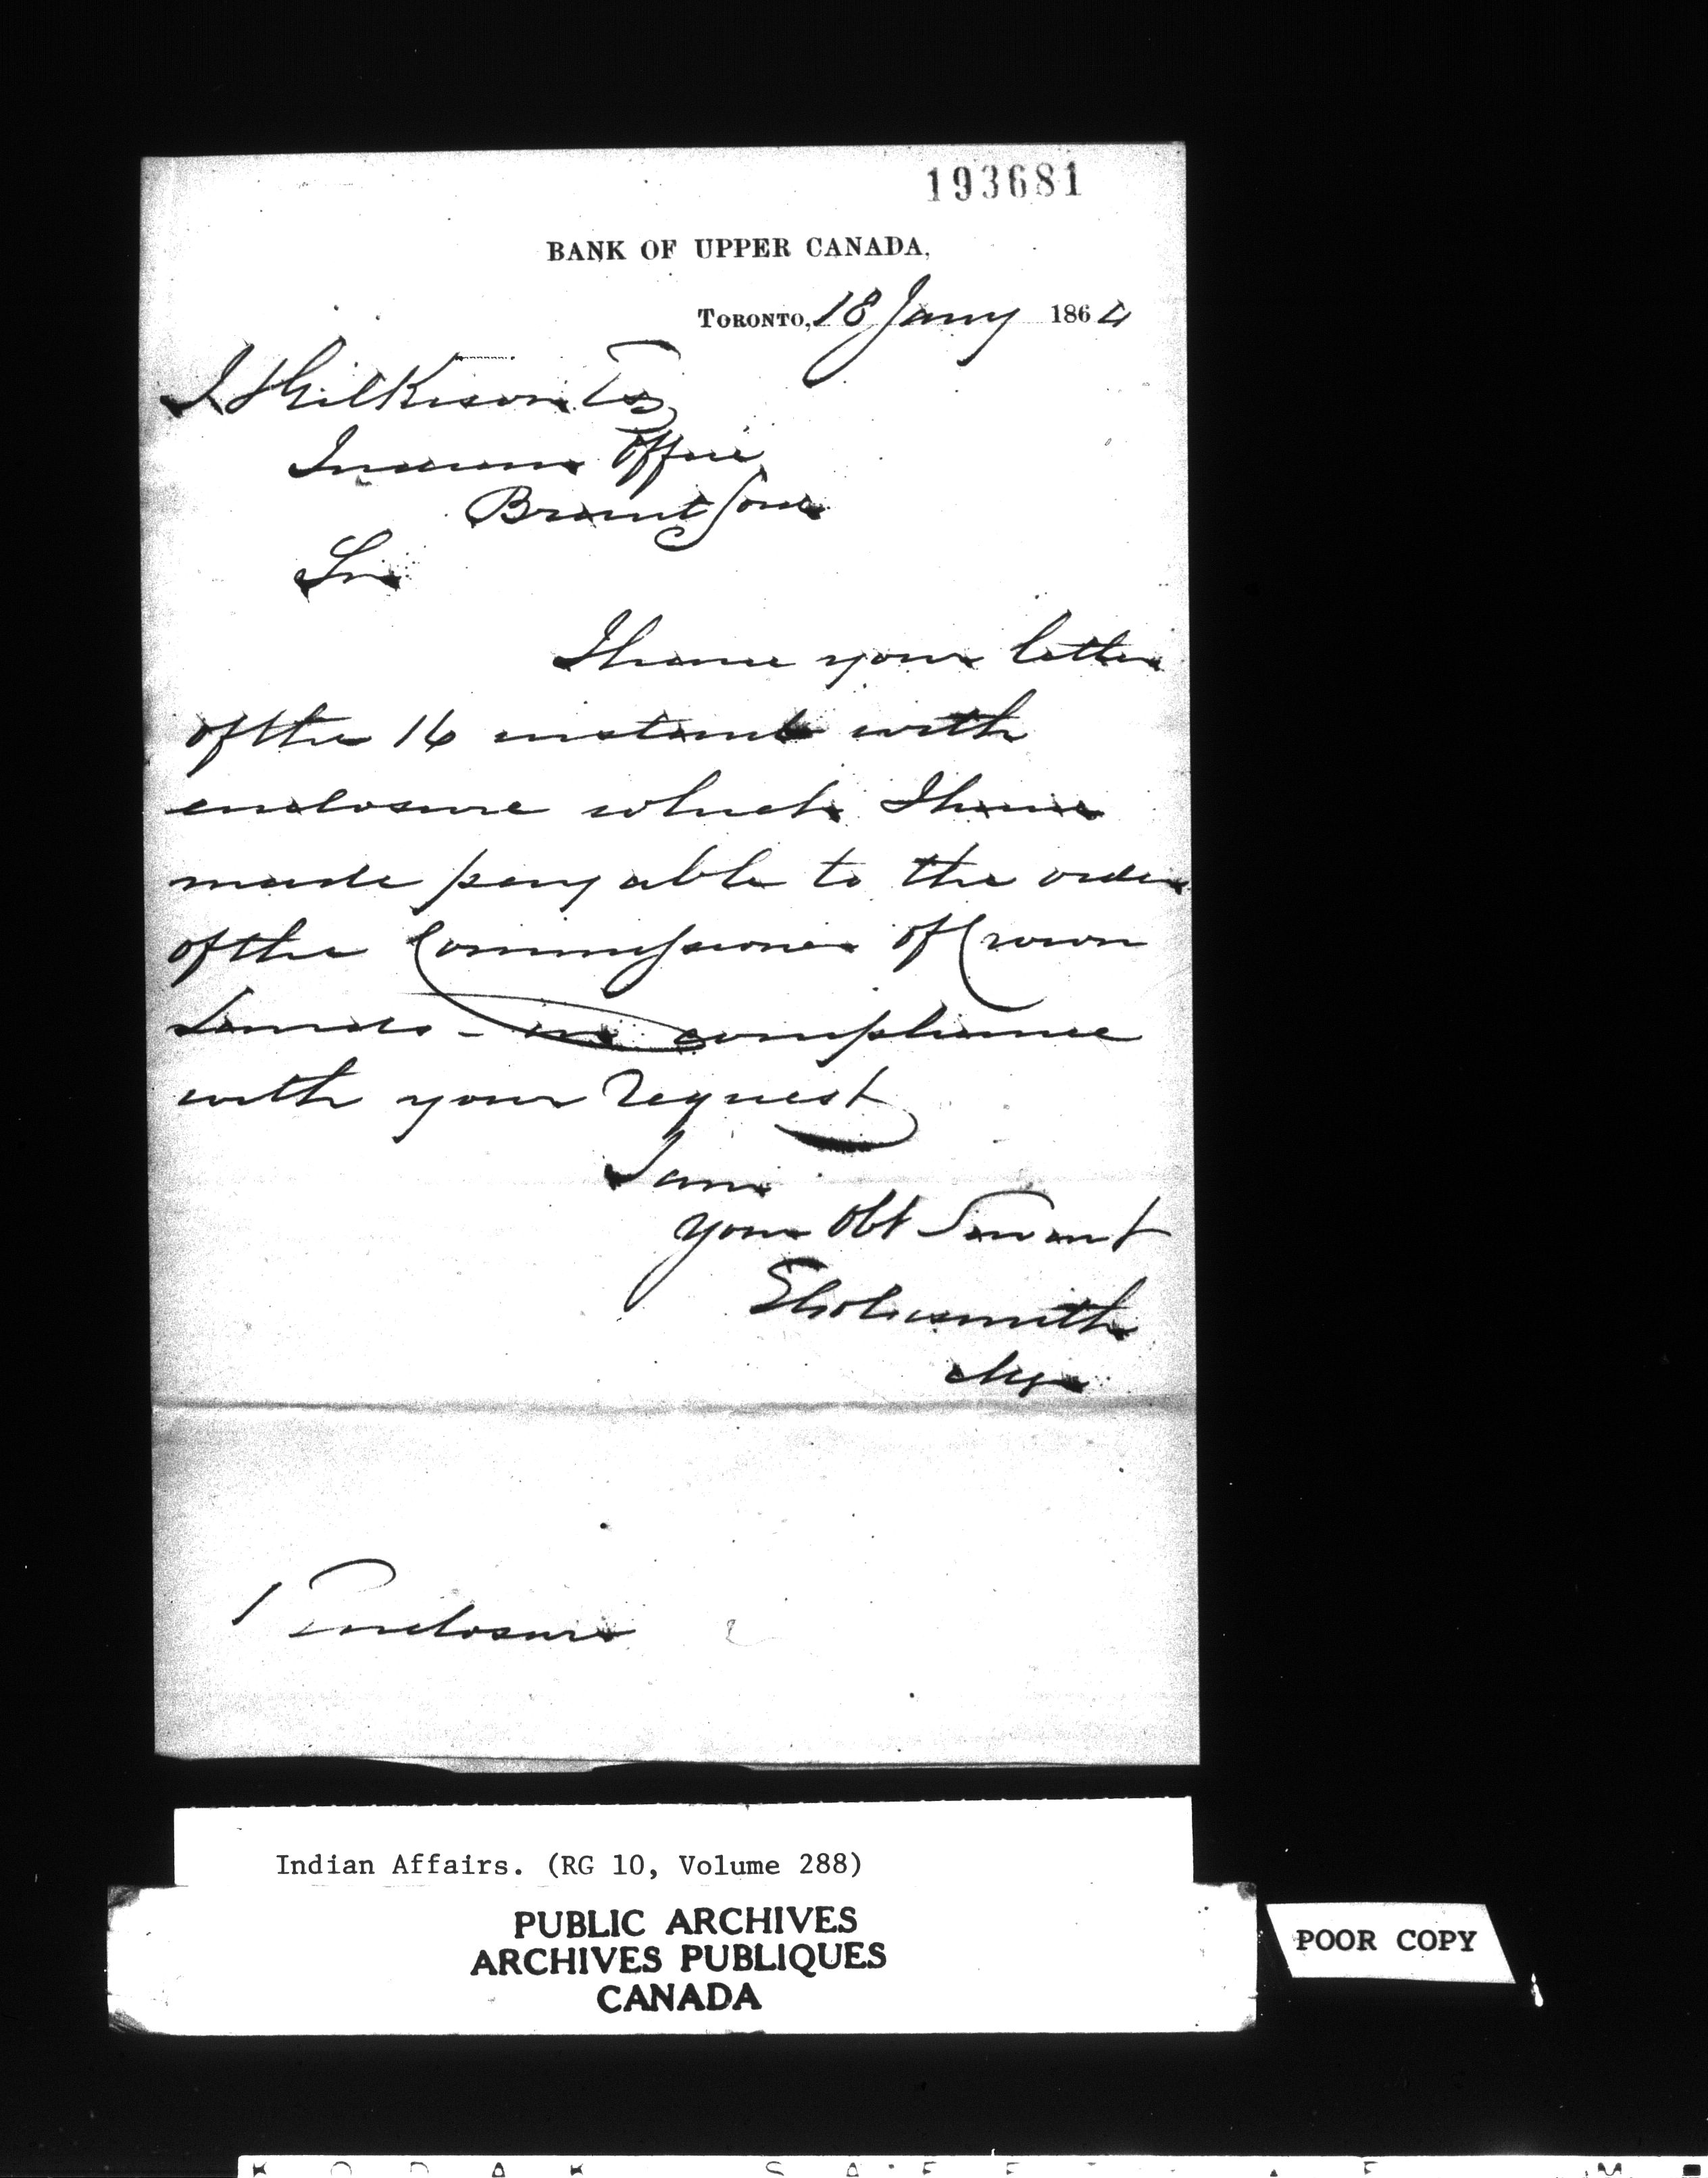 193681
BANK OF UPPER CANADA,
TORONTO, 18 Jany 1864
Gilkison Esq
Office
Brantford
Sir
I have your letter
of the 16 instant with
enclosure which I have
made payable to the order
of the Commissioner of Crown
Lands - in compliance
with your request
I am
your Obt Servant
Mgr
1 Enclosure
Indian Affairs. (RG 10, Volume 288)
PUBLIC ARCHIVES
ARCHIVES PUBLIQUES
CANADA
POOR COPY